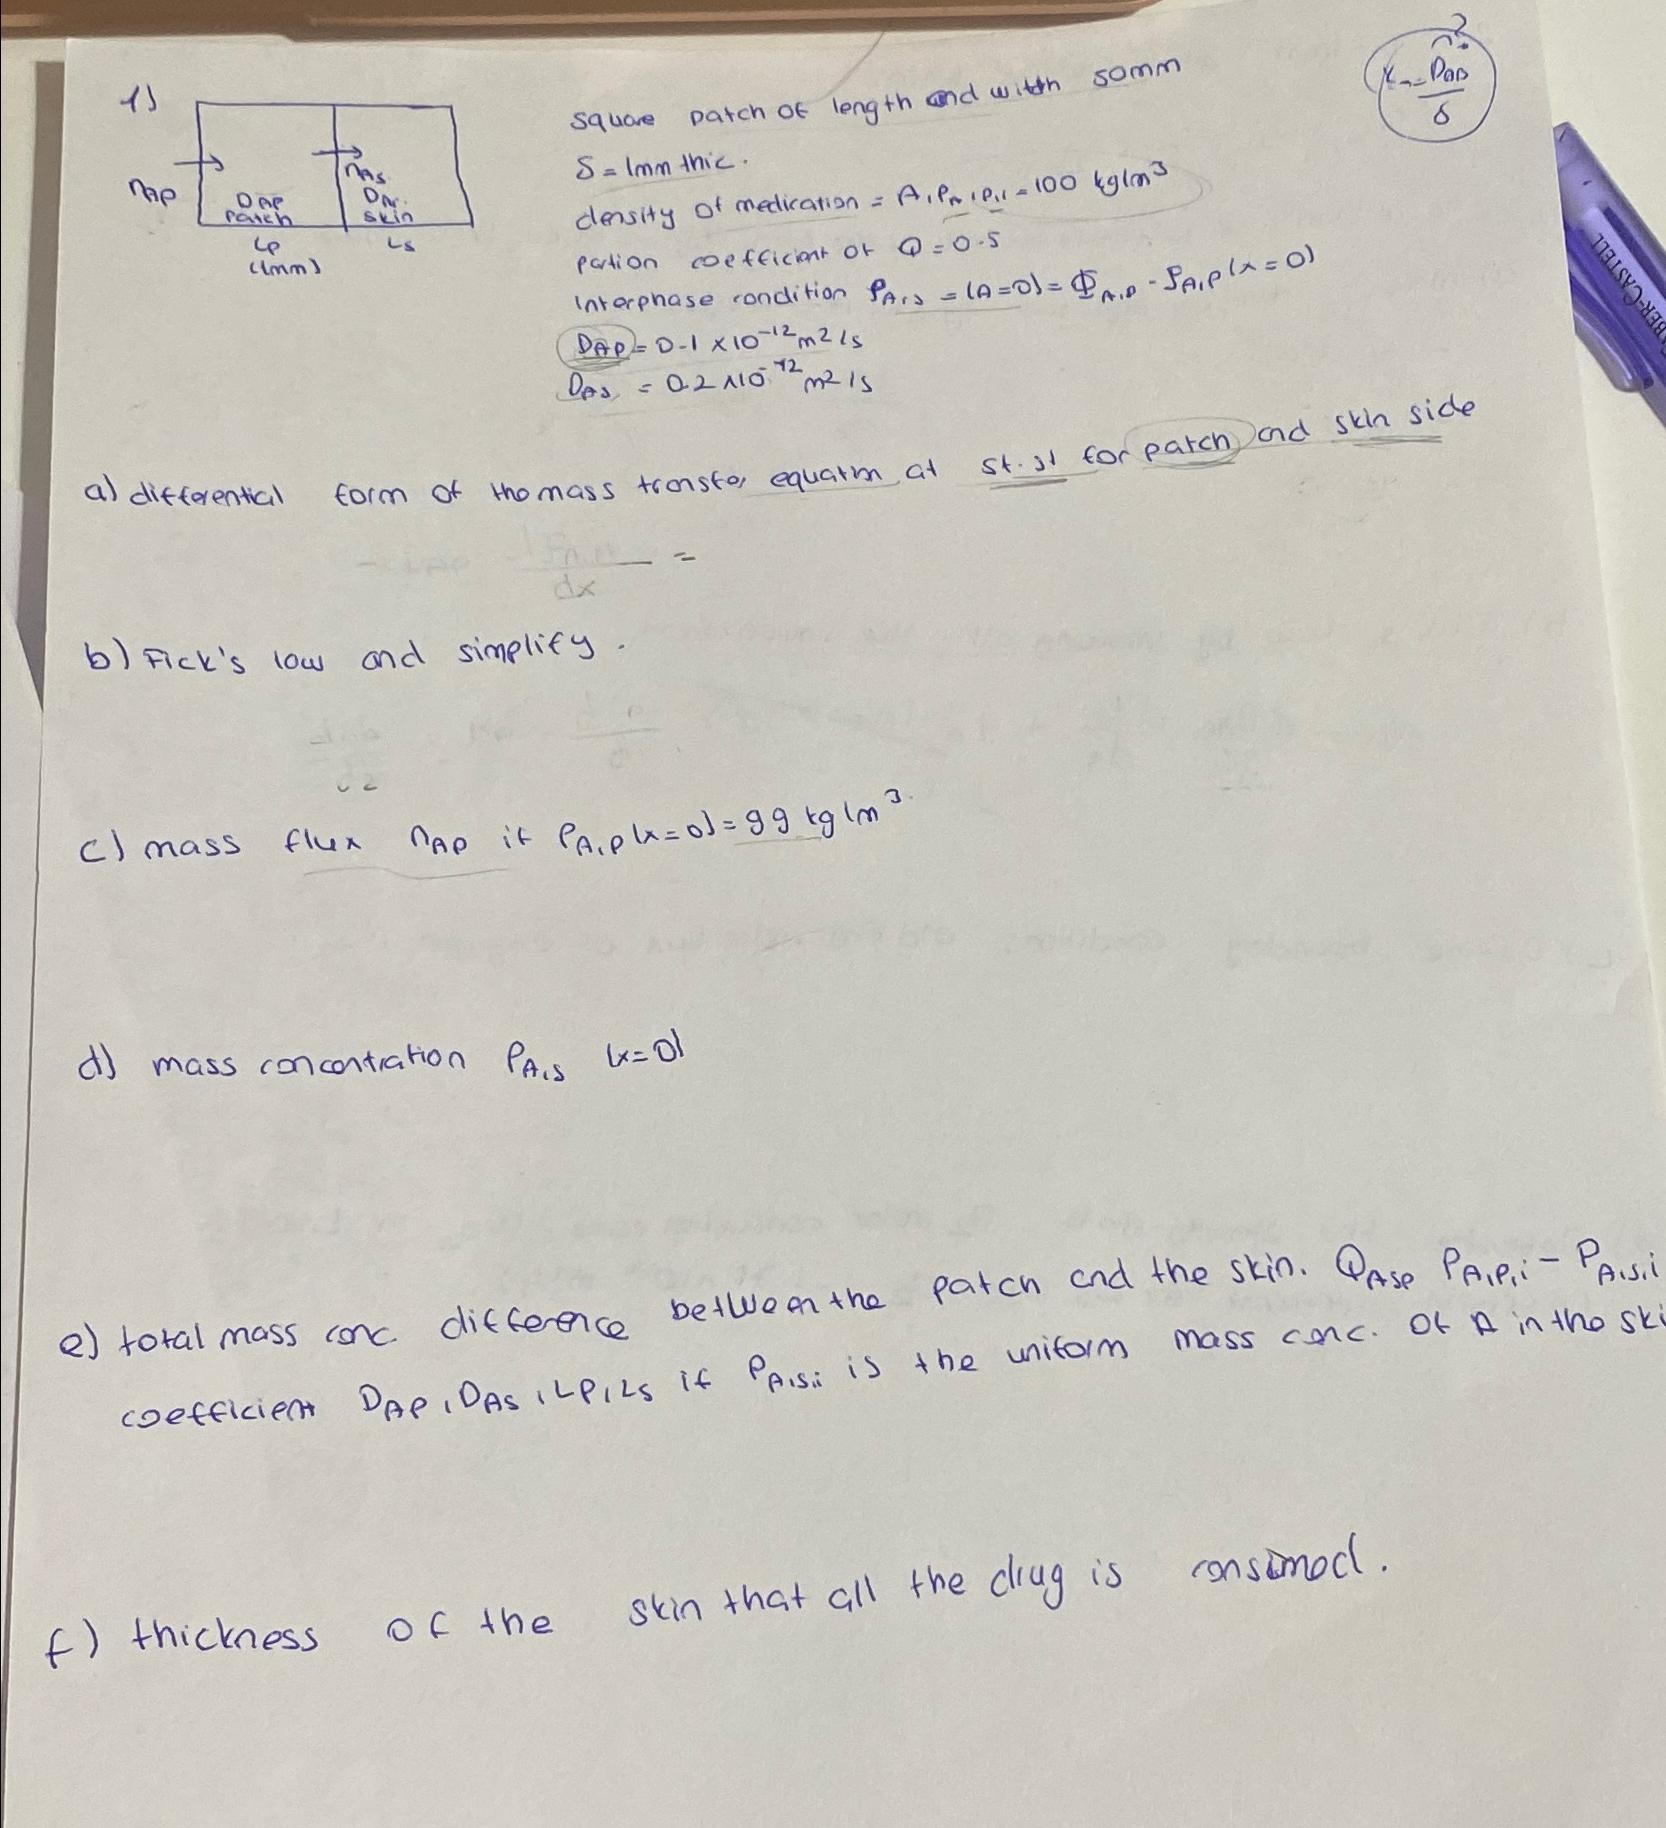 1)
square patch of length and width 50mm
δ = 1mm thic.
density of medication = A, ρA,P,i = 100 kg/m³
partion coefficient of Q = 0.5
Interphase condition ρA,s = (A=0) = ΦA,P - ρA,P(x=0)
DAP = 0.1 x10⁻¹² m²/s
DAs = 0.2 x10⁻¹² m²/s
nAP
DAP
patch
nAs
skin
Lp
Ls
(1mm)
DAB
δ
?
FABER-CASTELL
a) differential form of the mass transfer equation at st.st for patch and skin side
dx
=
b) Fick's low and simplify.
c) mass flux nAP if ρA,P(x=0) = 99 kg/m³.
d) mass concentration ρA,s (x=0)
e) total mass conc. difference between the patch and the skin. QAsp ρA,P,i - ρA,s,i
coefficient DAP, DAs, LP, Ls if ρA,s,i is the uniform mass conc. of A in the ski
f) thickness of the skin that all the drug is consumed.